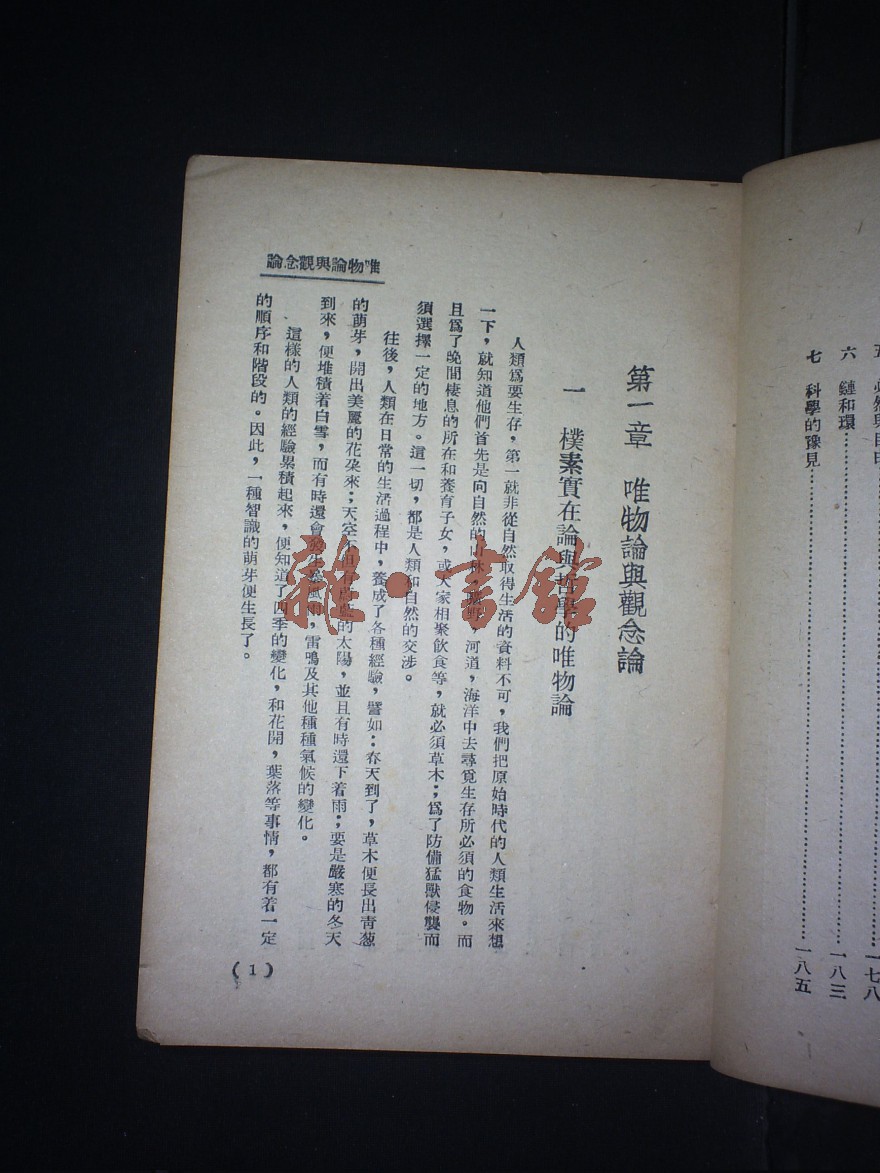 五　必然與自由……一七八
六　鏈和環……一八三
七　科學的豫見……一八五
唯物論與觀念論
第一章　唯物論與觀念論
一　樸素實在論與哲學的唯物論
人類爲要生存，第一就非從自然取得生活的資料不可，我們把原始時代的人類生活來想
一下，就知道他們首先是向自然的山林，，河道，海洋中去尋覓生存所必須的食物。而
且爲了晚間棲息的所在和養育子女，或大家相聚飲食等，就必須草木；爲了防備猛獸侵襲而
須選擇一定的地方。這一切，都是人類和自然的交涉。
往後，人類在日常的生活過程中，養成了各種經驗，譬如：春天到了，草木便長出青葱
的萌芽，開出美麗的花朶來；天空不但有的太陽，並且有時還下着雨；要是嚴寒的冬天
到來，便堆積着白雪，而有時還會發生暴風雨，雷鳴及其他種種氣候的變化。
這樣的人類的經驗累積起來，便知道了四季的變化，和花開，葉落等事情，都有着一定
的順序和階段的。因此，一種智識的萌芽便生長了。
(1)
雜·書館